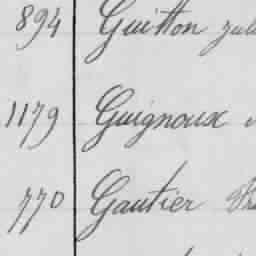 894 Guitton
1179 Guignoux
770 Gautier